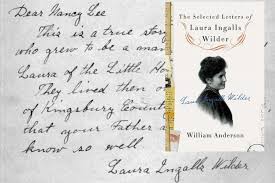 Dear Nancy Lee
This is a true story
who grew to be a man
Laura of the Little Ho
They lived then o
of Kingsbury Count
that your Father a
know so well
Laura Ingalls Wilder
The Selected Letters of
Laura Ingalls
Wilder
Laura Ingalls Wilder
William Anderson